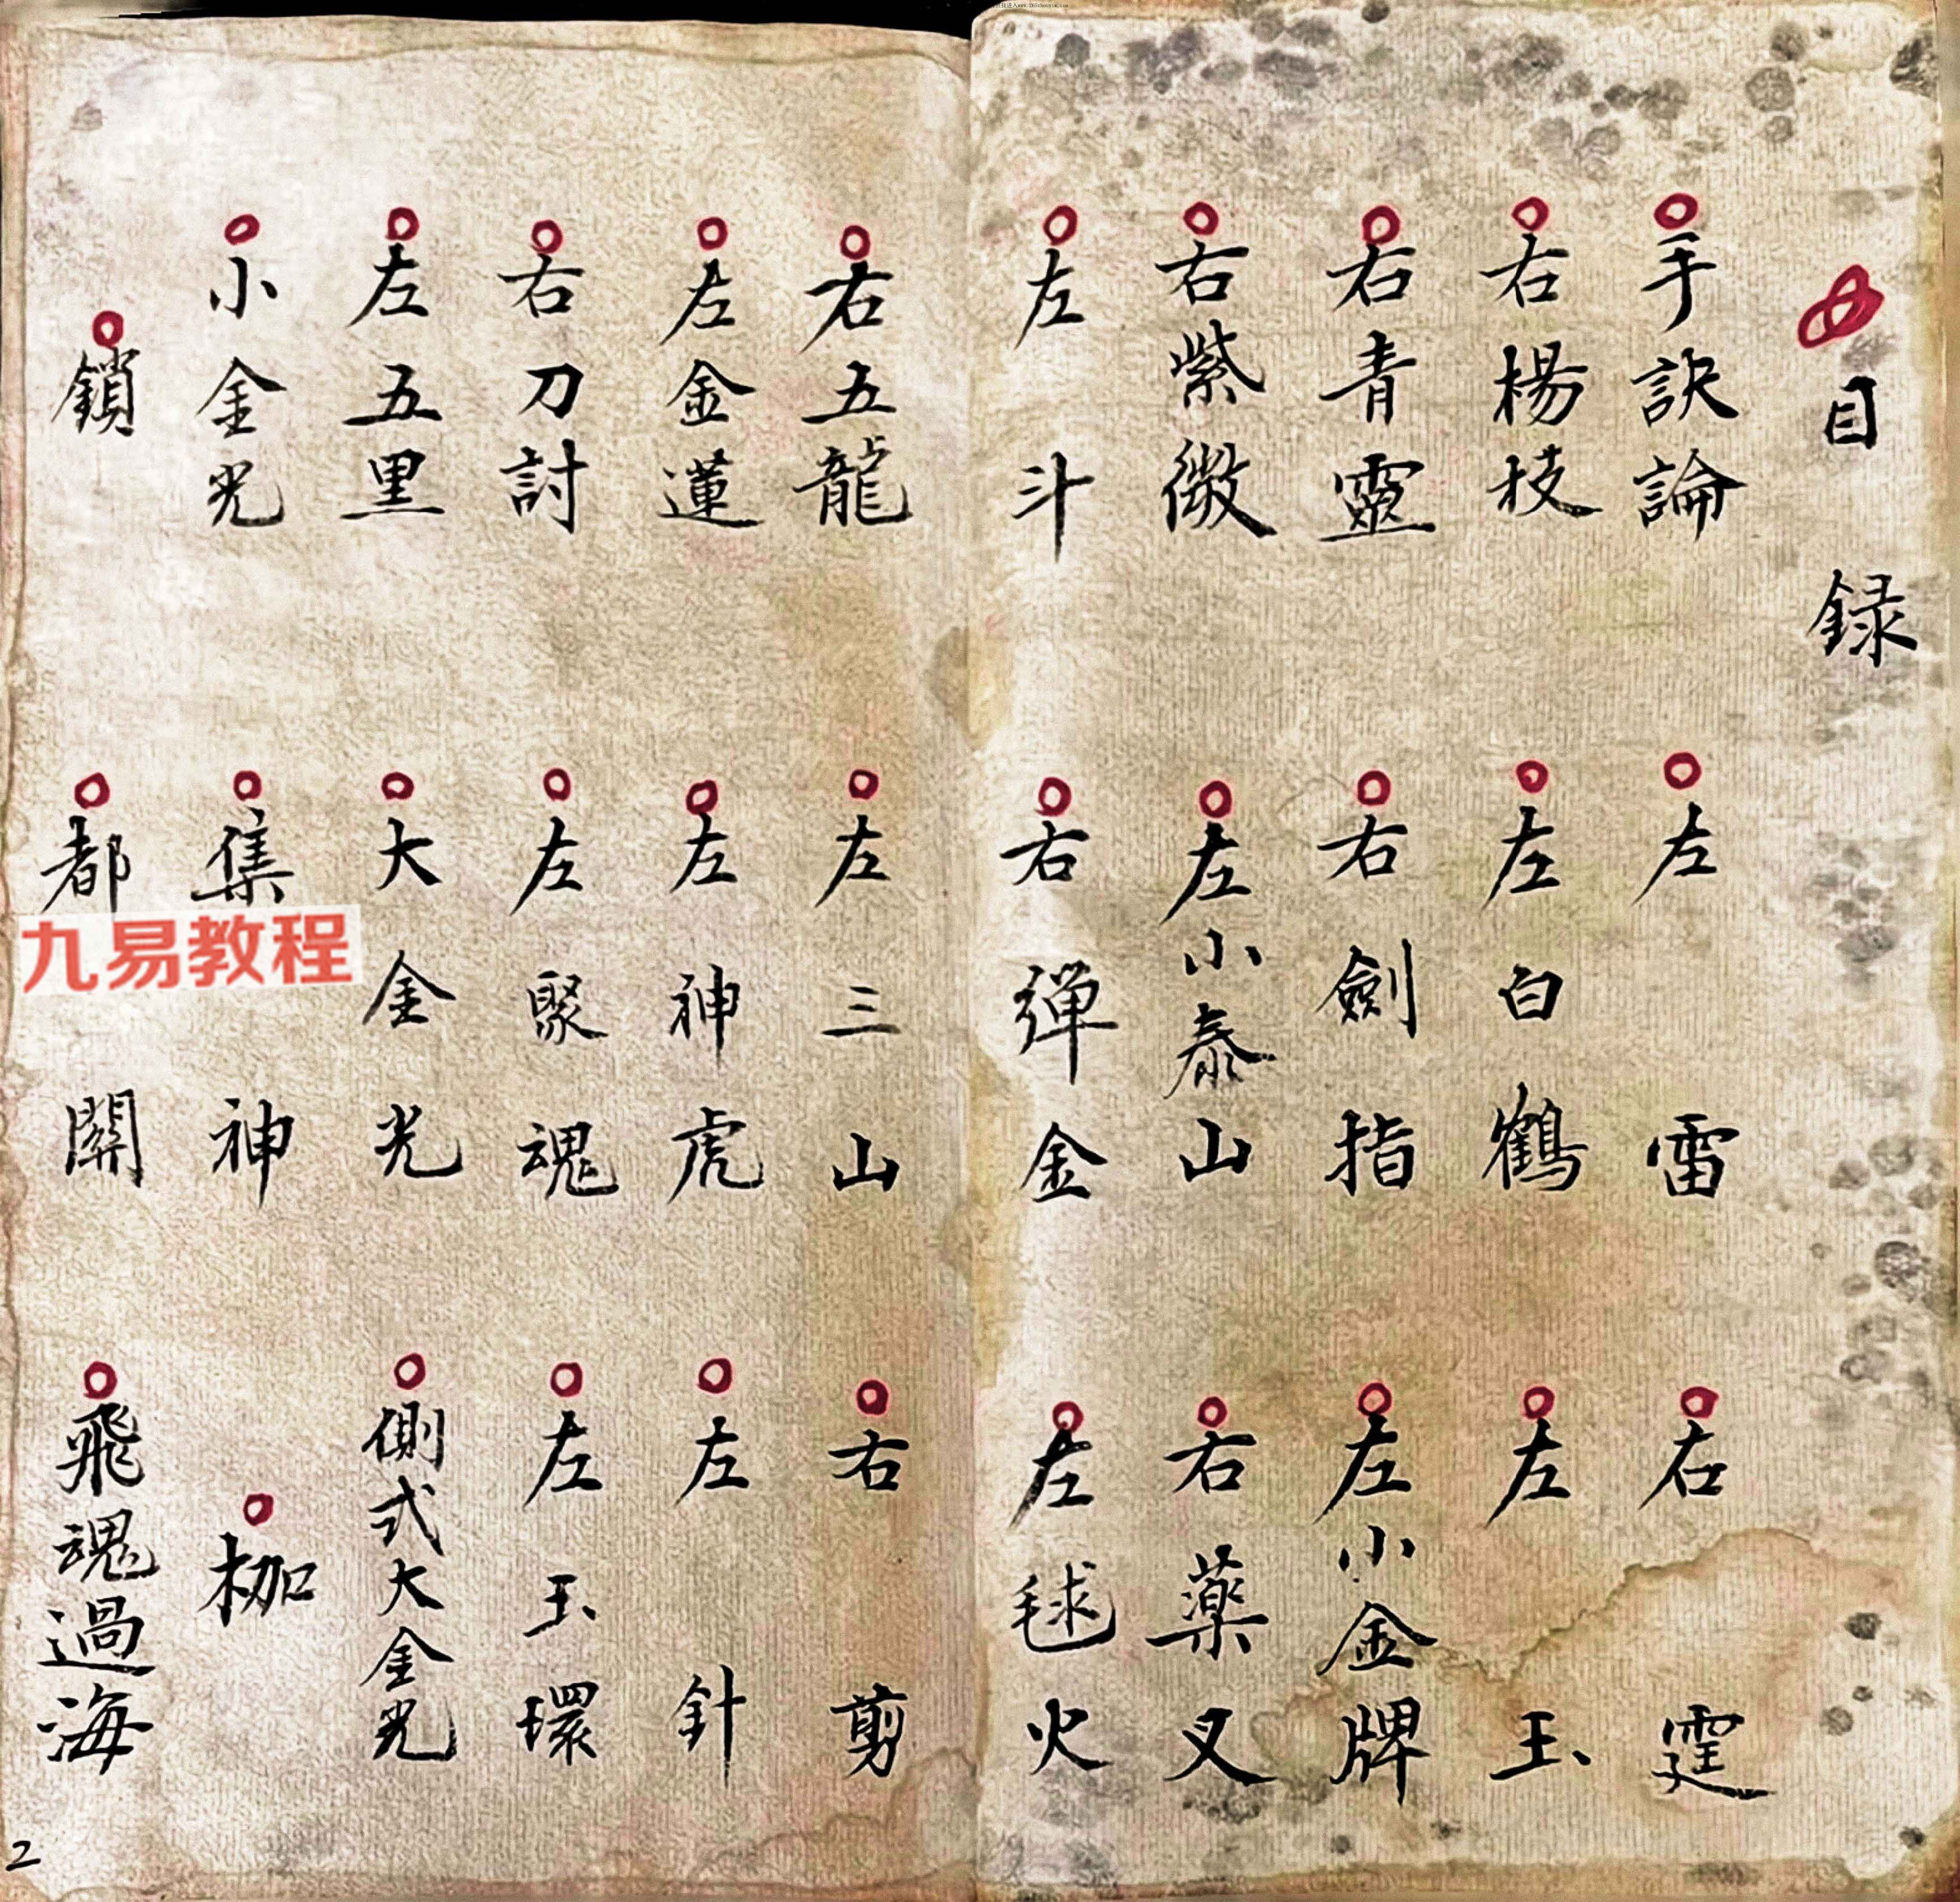 目錄
手訣論
左雷
右霆
右楊枝
左白鶴
左玉
右青靈
右劍指
左小金牌
右紫微
左小泰山
右藥叉
左斗
右彈金
左毬火
右五龍
左三山
右剪
左金蓮
左神虎
左針
右刀討
左聚魂
左玉環
左五里
大金光
側式大金光
小金光
集神
枷
鎖
都關
飛魂過海
九易教程
2